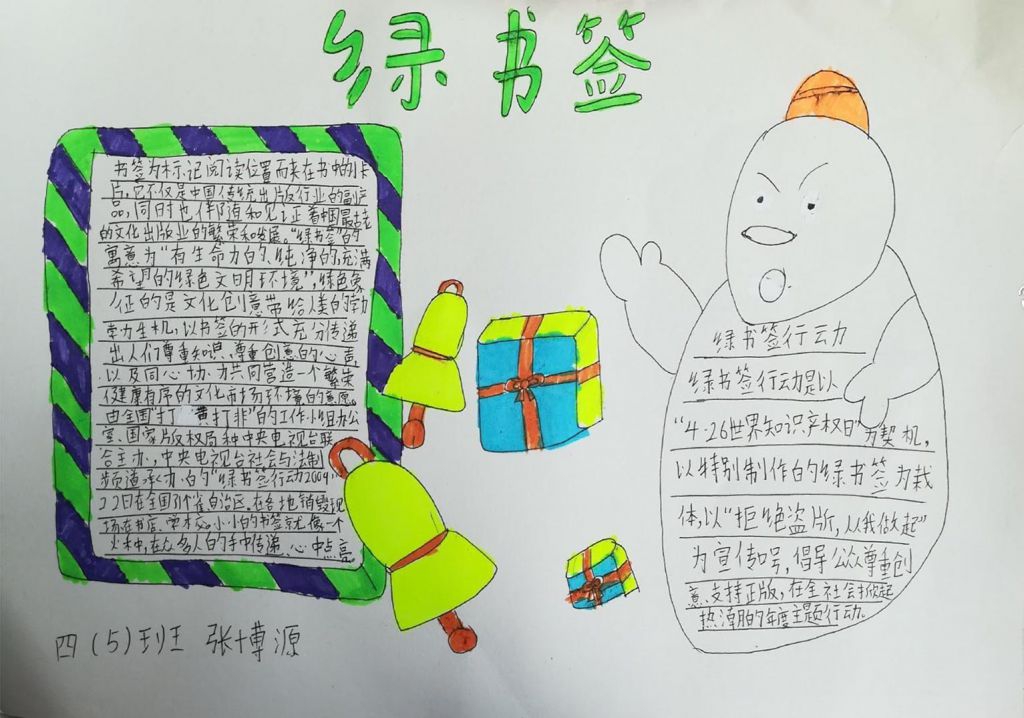 绿书签
书签为标记阅读位置而夹在书中的卡
片,它不仅是中国传统出版行业的副产
品,同时也伴随和见证着中国最
的文化出版业的繁荣和发展。"绿书签"的
寓意为"有生命力的、纯净的,充满
希望的绿色文明环境",绿色象
征的是文化创意带给人类的勃
勃力生机,以书签的形式充分传递
出人们尊重知识、尊重创意的心声
以及同心协力共同营造一个繁荣
健康有序的文化市场环境的意愿。
由全国"打 黄打非"的工作小组办公
室、国家版权局和中央电视台联
合主办,中央电视台社会与法制
频道承办的"绿书签行动2009年
22日在全国31个省自治区。在各地销毁现
场在书店、学校。小小的书签就像一个
火种,在众多人的手中传递、心中点亮
绿书签行动
绿书签行动是以
"4·26世界知识产权日"为契机,
以特别制作的绿书签为载
体,以"拒绝盗版,从我做起"
为宣传口号,倡导公众尊重创
意、支持正版,在全社会掀起
热潮的年度主题行动。
四(5)班 张博源